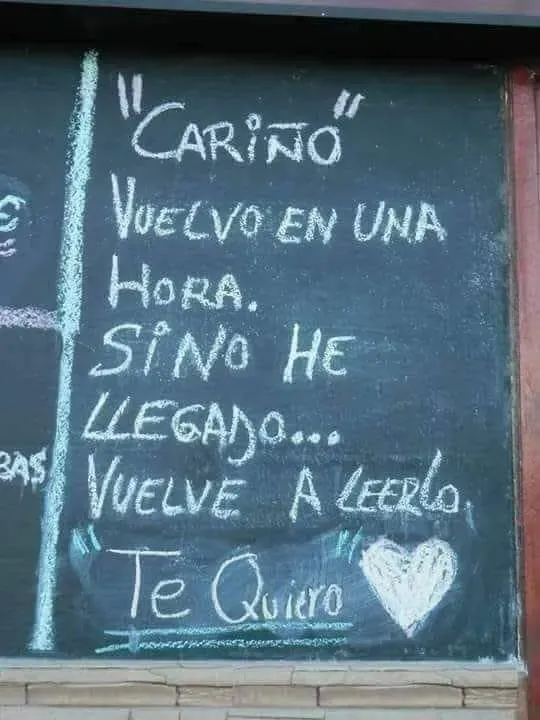 "CARIÑO"
VUELVO EN UNA
HORA.
SINO HE
LLEGADO...
VUELVE A LEERLO.
"Te Quiero"
€
BAS